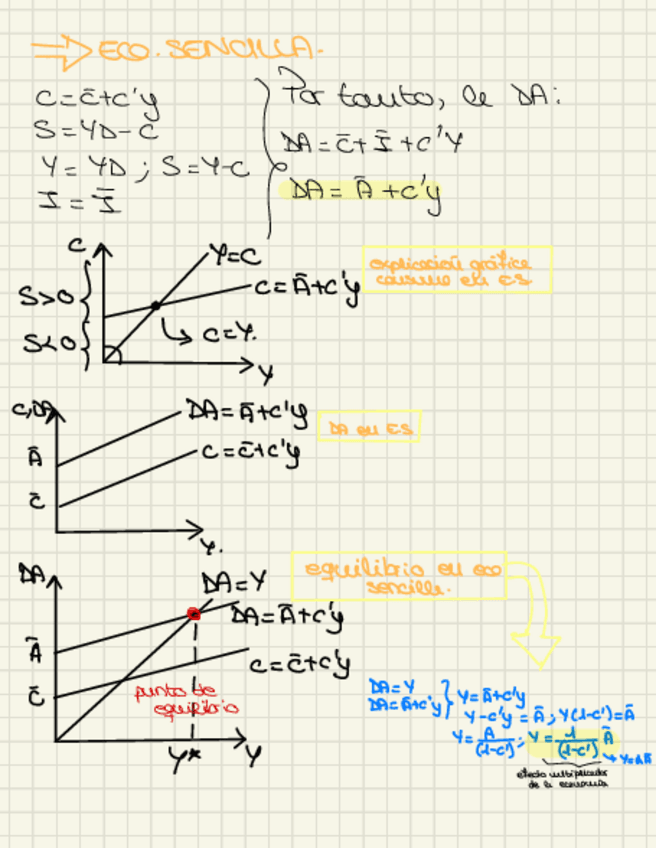 ⇒ ECO. SENCILLA.
C = c̄ + c'y
S = YD - C
Y = YD ; S = Y - C
I = Ī
Por tanto, la DA:
DA = c̄ + Ī + c'Y
DA = Ā + c'y
C
Y = C
C = Ā + c'y
S>0
S<0
C = Y.
Y
explicación gráfica
consumo en ES
C, DA
DA = Ā + c'y
C = c̄ + c'y
Ā
c̄
Y.
DA en ES
DA
DA = Y
DA = Ā + c'y
C = c̄ + c'y
Ā
c̄
punto de
equilibrio
Y*
Y
equilibrio en eco
sencilla.
DA = Y
DA = Ā + c'y
Y = Ā + c'y
Y - c'y = Ā ; Y(1-c') = Ā
Y = A/(1-c') ; Y = 1/(1-c') Ā
efecto multiplicador
de la economía